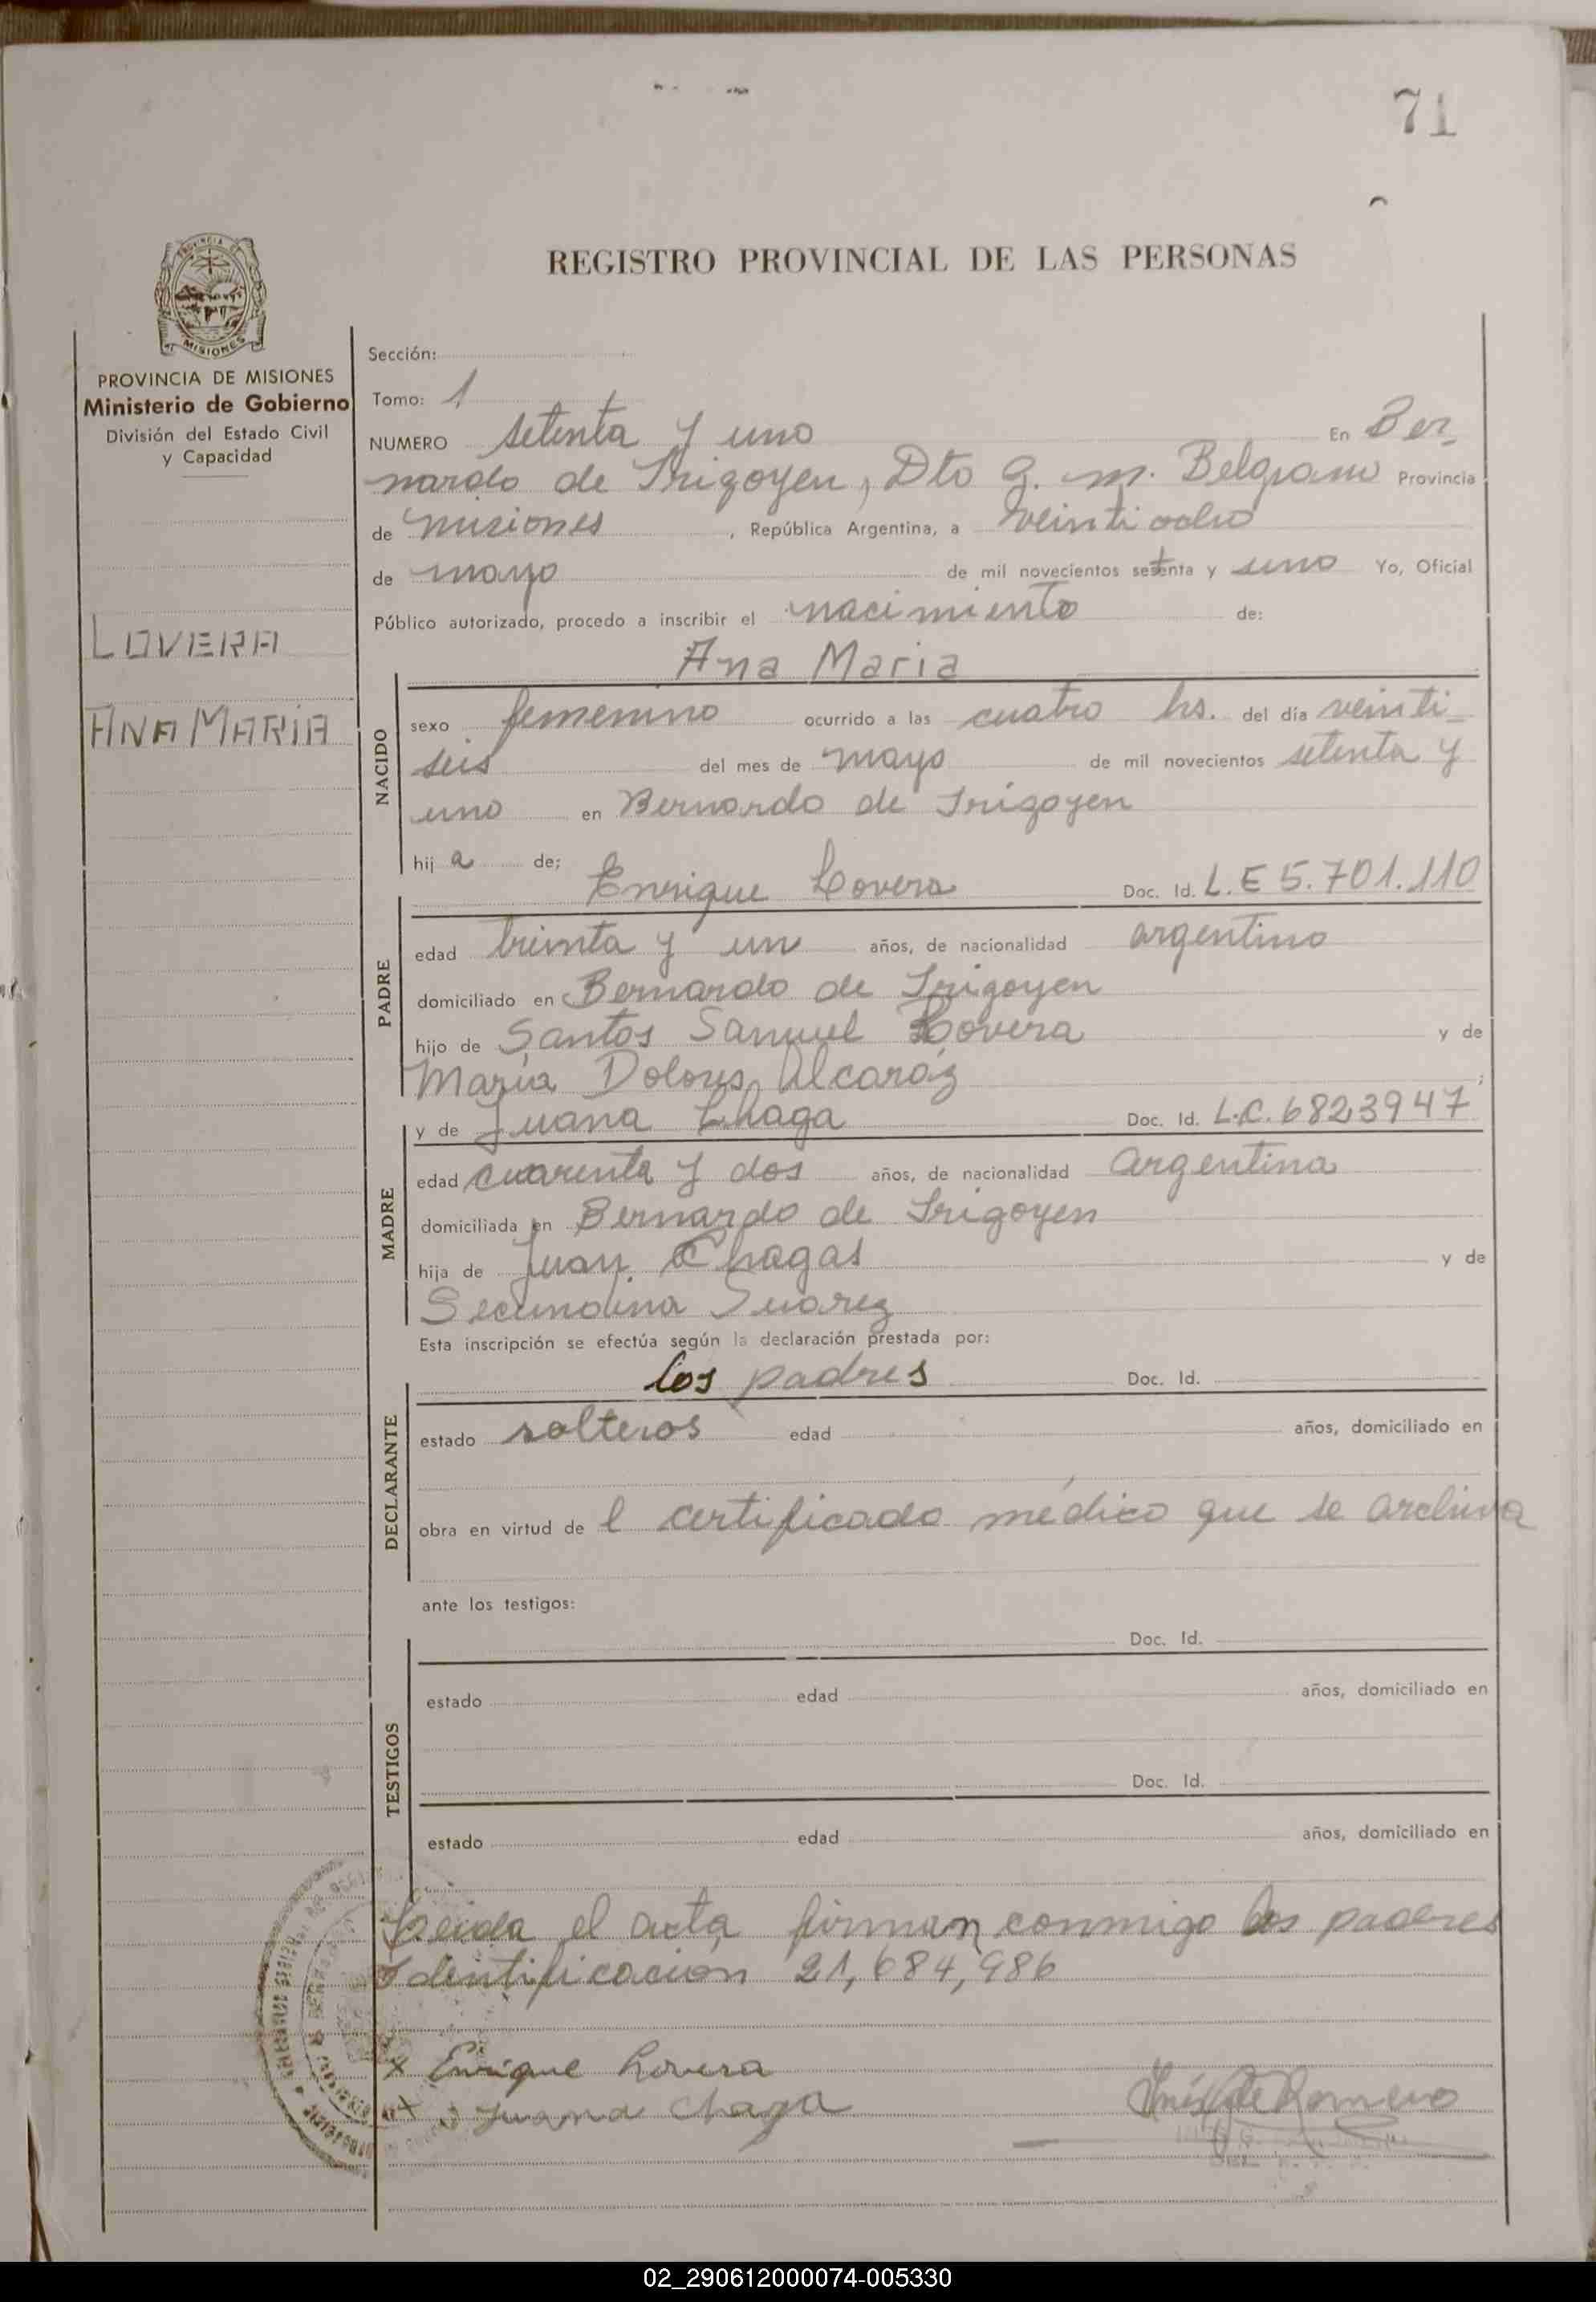 71
REGISTRO PROVINCIAL DE LAS PERSONAS
MISIONES
PROVINCIA DE MISIONES
Ministerio de Gobierno
División del Estado Civil
y Capacidad
LOVERA
ANA MARIA
Sección:
Tomo: 1
NUMERO setenta y uno En Ber
nardo de Irigoyen, Dto G. M. Belgrano Provincia
de Misiones, República Argentina, a veintiocho
de mayo de mil novecientos setenta y uno Yo, Oficial
Público autorizado, procedo a inscribir el nacimiento de:
Ana Maria
NACIDO
sexo femenino ocurrido a las cuatro hs. del día veinti
seis del mes de mayo de mil novecientos setenta y
uno en Bernardo de Irigoyen
hij a de;
Enrique Lovera Doc. Id. L.E 5.701.110
PADRE
edad treinta y un años, de nacionalidad argentino
domiciliado en Bernardo de Irigoyen
hijo de Santos Samuel Lovera y de
María Dolores Alcaráz;
y de Juana Chaga Doc. Id. L.C. 6823947
MADRE
edad cuarenta y dos años, de nacionalidad Argentina
domiciliada en Bernardo de Irigoyen
hija de Juan Chagas y de
Secundina Suarez
Esta inscripción se efectúa según la declaración prestada por:
los padres Doc. Id.
DECLARANTE
estado solteros edad años, domiciliado en
obra en virtud de l certificado médico que se archiva
ante los testigos:
Doc. Id.
TESTIGOS
estado edad años, domiciliado en
Doc. Id.
estado edad años, domiciliado en
Leida el acta firman conmigo los padres
Identificación 21,684,986
x Enrique Lovera
x Juana Chaga
Inés de Romero
02_290612000074-005330